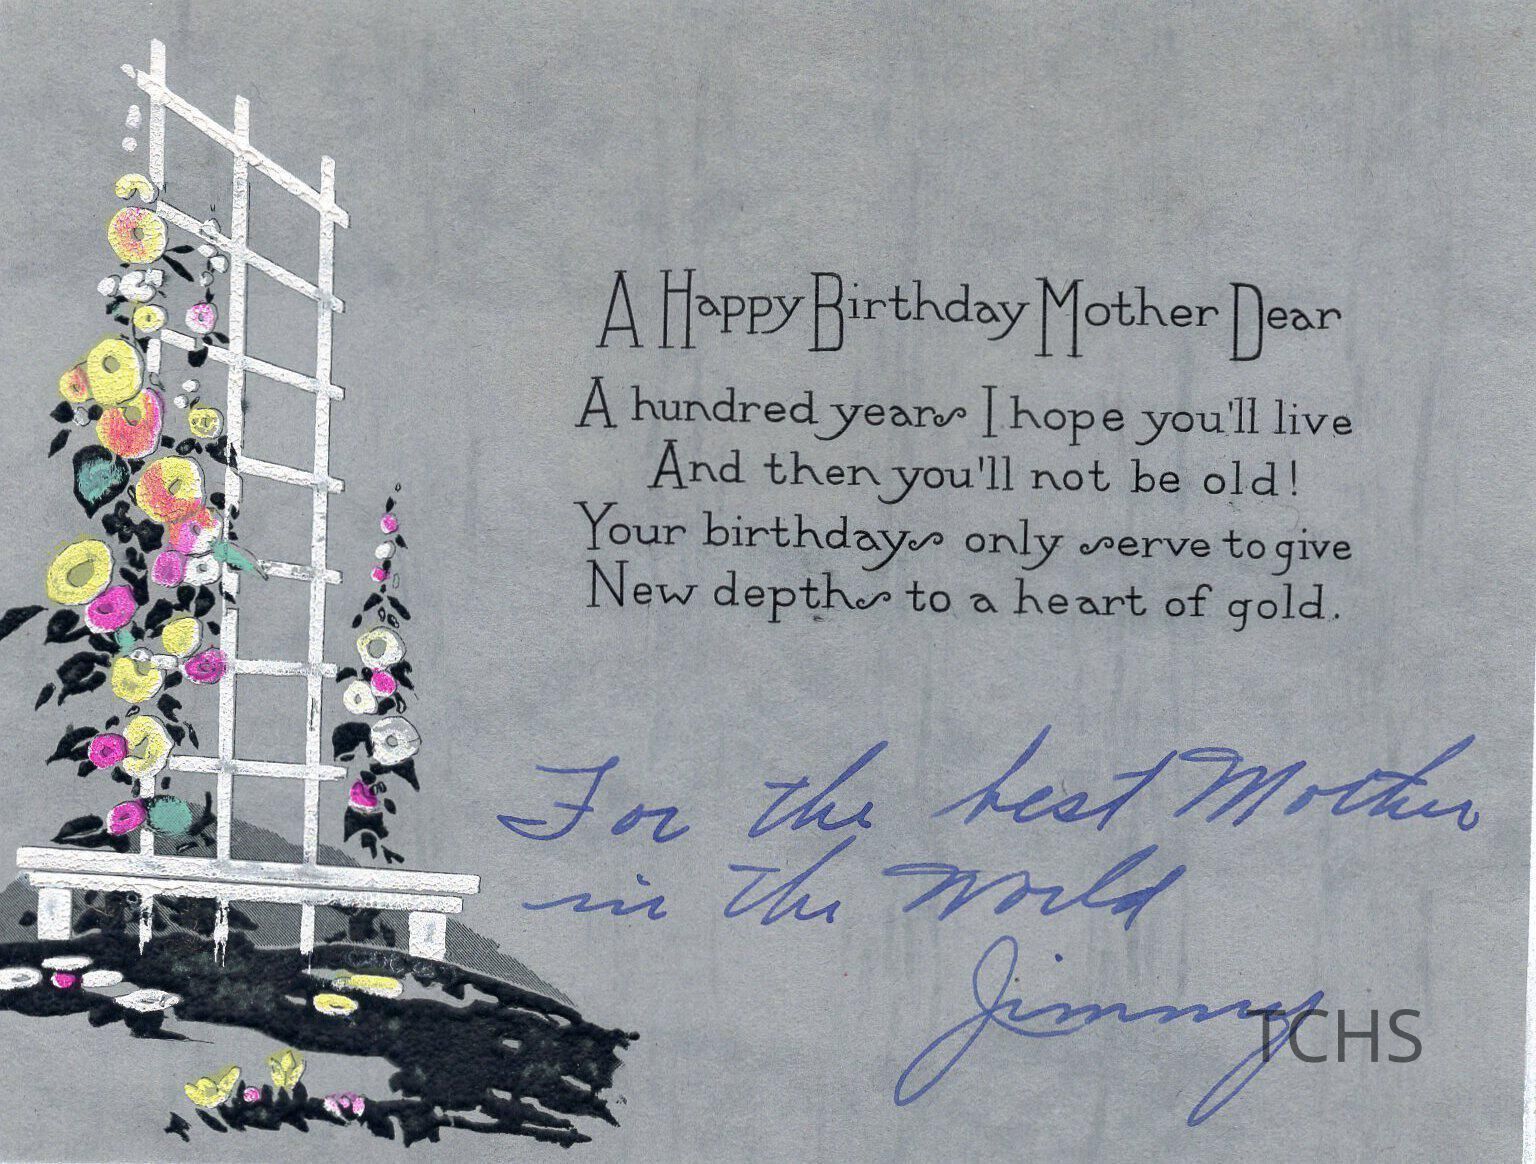 A Happy Birthday Mother Dear
A hundred years I hope you'll live
And then you'll not be old!
Your birthdays only serve to give
New depths to a heart of gold.
For the best Mother
in the World
Jimmy
TCHS